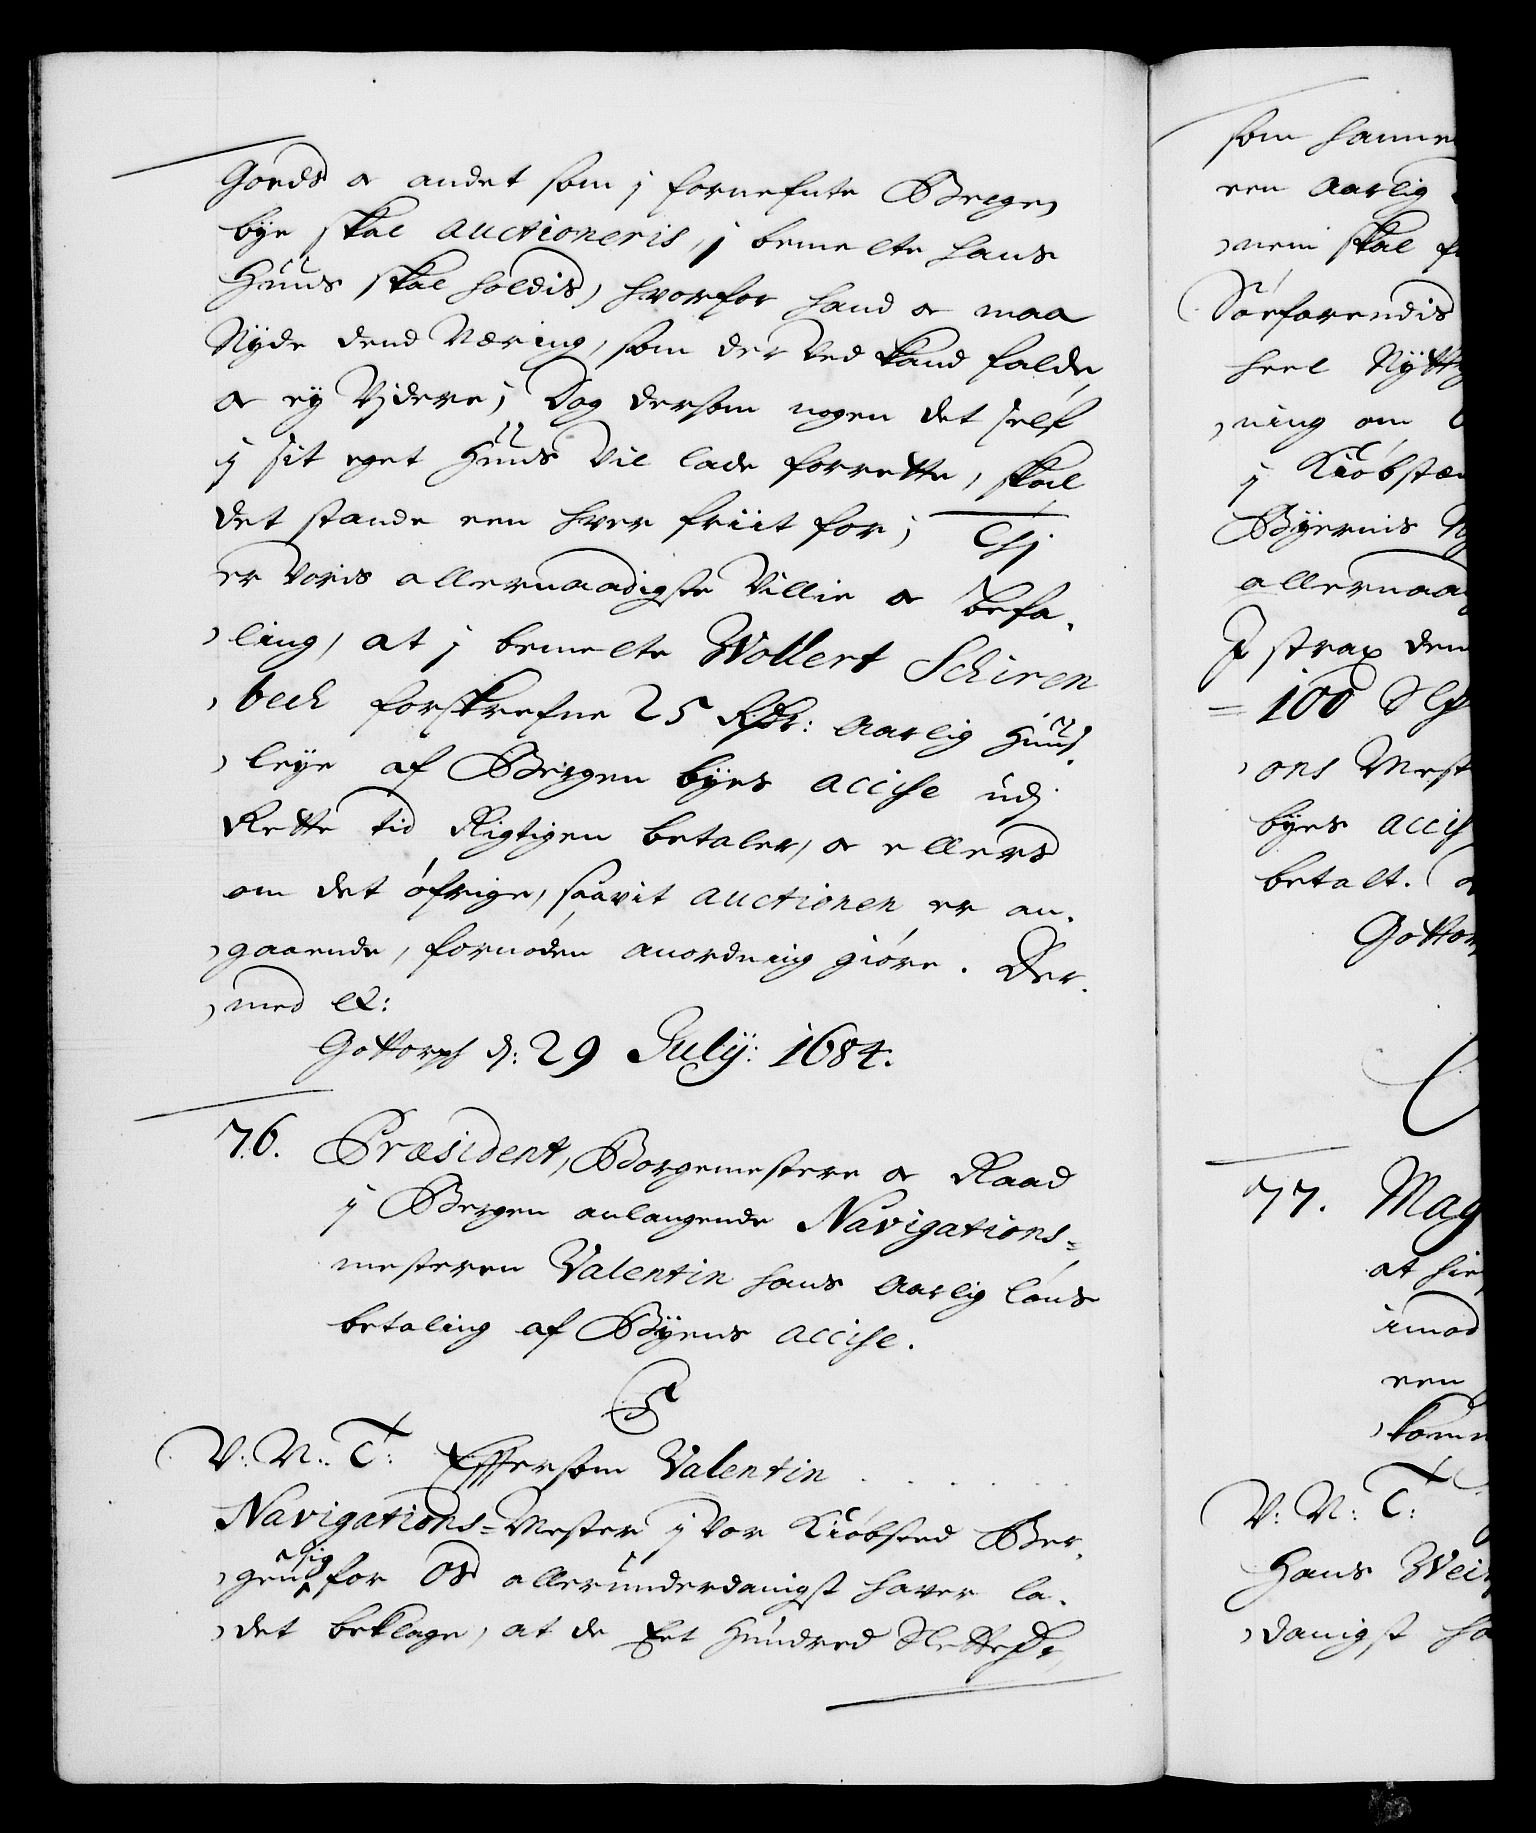 Goeds oc andet som j fornefnte Berge,
bye skal auctioneris, j bemelte hans
Huus skal holdis, hvorfor hand oc maa
Nyde dend Næring, som der ved kand falde,
oc ey Videre; Dog dersom nogen det self
ij sit eget Huus vil lade forrette, skal
det stande een hver friit for; Thj
er Voris allernaadigste Villie oc befa-
ling, at j bemelte Wollert Schiren
beck forskrefne 25 Rdr: Aarlig Huus-
leye af Bergen byes accise udj
Rette tid Rigtigen betaler, oc ellers
om det öfrige, saavit auctionen er an-
gaaende, fornöden anordning giöre. Der-
med etc:
Gottorph d: 29 Julij: 1684.
76. Præsident, Borgemestere oc Raad
ij Bergen anlangende Navigations-
mesteren Valentin hans Aarlig löns
betaling af Byens accise.
C5
V: N: T: Effersom Valentin . . . .
Navigations-Mester ij vor Kiöbsted Ber-
gen sig for Os allerunderdanigst haver la-
det beklage, at de Eet Hundred Slettedr,
som hanne
een Aarlig
nem skal f
Söefarendis
heel Nytt
ning om
ij Kiöbstæ
Byernis N
allernaad
I strax den
= 100 Slet
ons Mest
byes accis
betalt.
Gottor
77. Mag
at hie
imod
een
komm
V: N: T:
Hans Wei
danigst ha